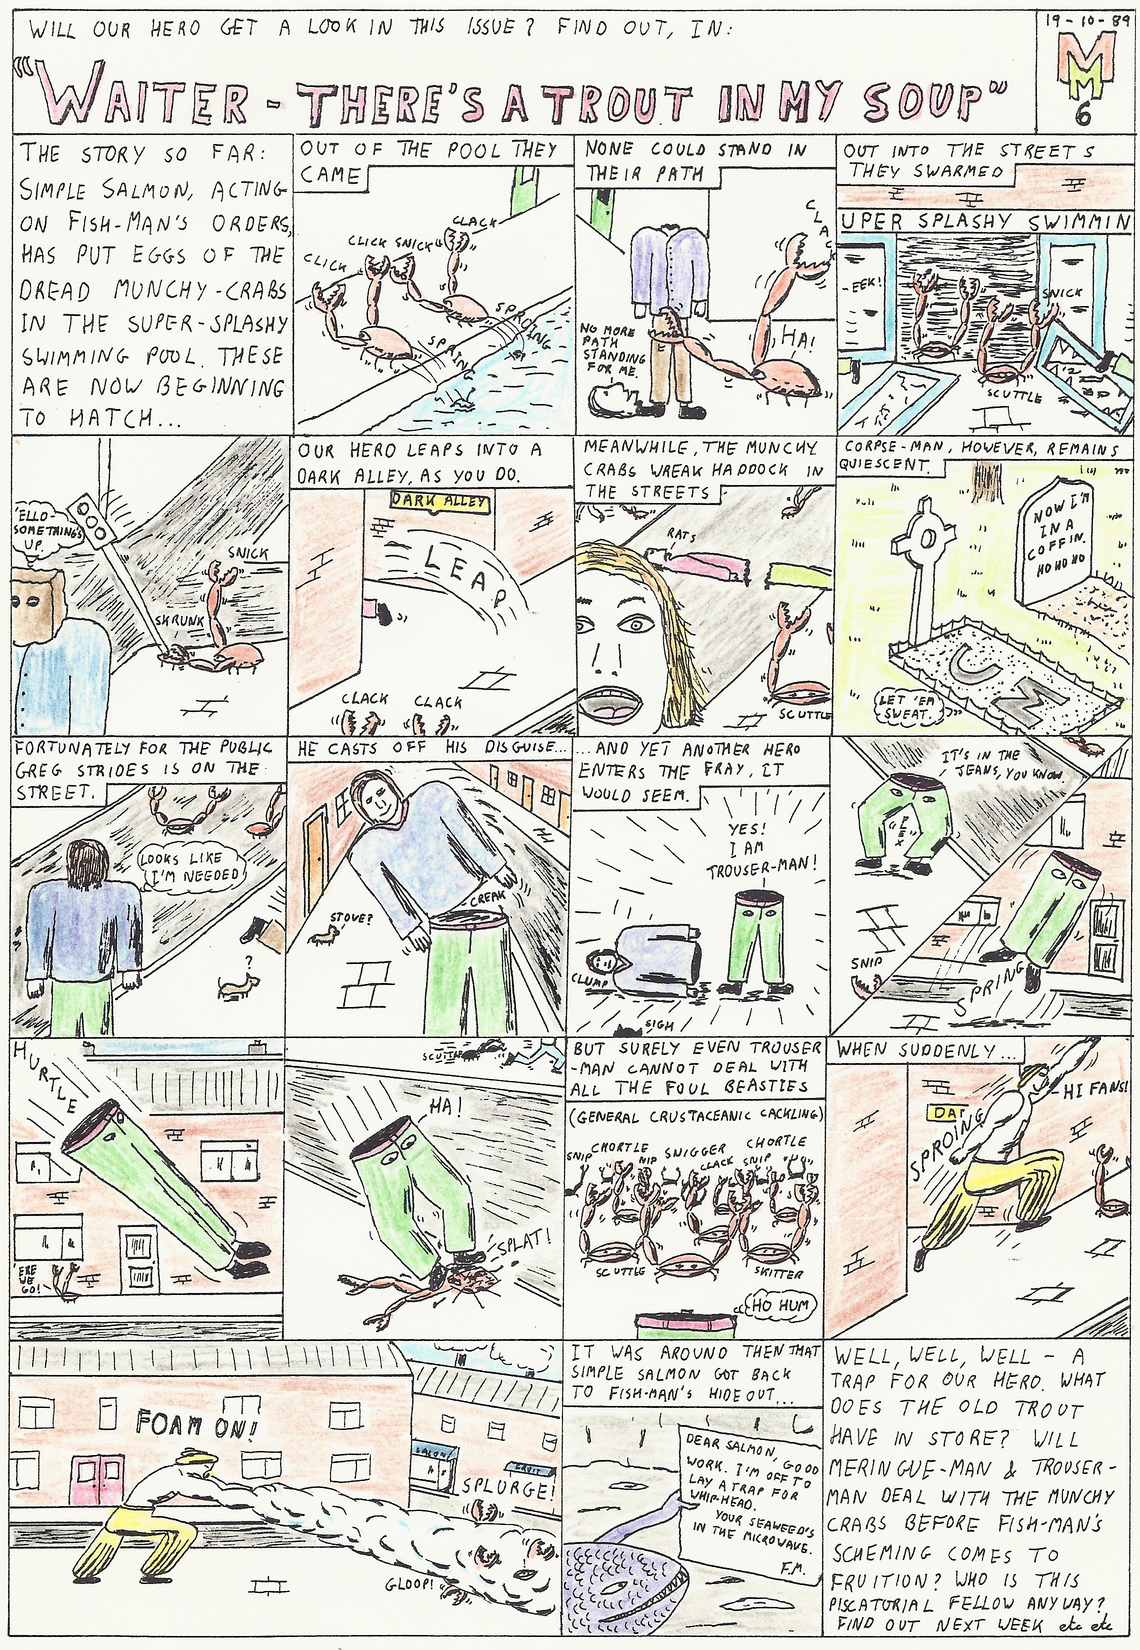 WILL OUR HERO GET A LOOK IN THIS ISSUE? FIND OUT, IN:
19-10-89
"WAITER - THERE'S A TROUT IN MY SOUP"
MM
6
THE STORY SO FAR:
SIMPLE SALMON, ACTING
ON FISH-MAN'S ORDERS,
HAS PUT EGGS OF THE
DREAD MUNCHY-CRABS
IN THE SUPER-SPLASHY
SWIMMING POOL. THESE
ARE NOW BEGINNING
TO HATCH...
OUT OF THE POOL THEY
CAME
CLACK
CLICK SNICK
CLICK
SPROING
SPRING
NONE COULD STAND IN
THEIR PATH
CLACK
NO MORE
PATH
STANDING
FOR ME.
HA!
OUT INTO THE STREETS
THEY SWARMED
UPER SPLASHY SWIMMIN
-EEK!
SNICK
SCUTTLE
'ELLO-
SOMETHING'S
UP.
SNICK
SKRUNK
OUR HERO LEAPS INTO A
DARK ALLEY, AS YOU DO.
DARK ALLEY
LEAP
CLACK CLACK
MEANWHILE, THE MUNCHY
CRABS WREAK HADDOCK IN
THE STREETS
RATS
SCUTTLE
CORPSE-MAN, HOWEVER, REMAINS
QUIESCENT.
NOW I'M
IN A
COFFIN.
HO HO HO
UM
LET 'EM
SWEAT.
FORTUNATELY FOR THE PUBLIC
GREG STRIDES IS ON THE
STREET.
LOOKS LIKE
I'M NEEDED
?
HE CASTS OFF HIS DISGUISE...
CREAK
STOVE?
...AND YET ANOTHER HERO
ENTERS THE FRAY, IT
WOULD SEEM.
YES!
I AM
TROUSER-MAN!
CLUMP
SIGH
IT'S IN THE
JEANS, YOU KNOW.
FLEX
SNIP
SPRING
HURTLE
'ERE
WE
GO!
SCUTTLE
HA!
SPLAT!
BUT SURELY EVEN TROUSER
-MAN CANNOT DEAL WITH
ALL THE FOUL BEASTIES
(GENERAL CRUSTACEANIC CACKLING)
CHORTLE
SNIP
NIP
SNIGGER
CHORTLE
CLACK SNIP
SCUTTLE
SKITTER
HO HUM
WHEN SUDDENLY...
HI FANS!
DAR
SPROING
FOAM ON!
SALON
FRUIT
SPLURGE!
GLOOP!
IT WAS AROUND THEN THAT
SIMPLE SALMON GOT BACK
TO FISH-MAN'S HIDEOUT...
DEAR SALMON, GOOD
WORK. I'M OFF TO
LAY A TRAP FOR
WHIP-HEAD.
YOUR SEAWEED'S
IN THE MICROWAVE.
F.M.
WELL, WELL, WELL - A
TRAP FOR OUR HERO. WHAT
DOES THE OLD TROUT
HAVE IN STORE? WILL
MERINGUE-MAN & TROUSER-
MAN DEAL WITH THE MUNCHY
CRABS BEFORE FISH-MAN'S
SCHEMING COMES TO
FRUITION? WHO IS THIS
PISCATORIAL FELLOW ANYWAY?
FIND OUT NEXT WEEK etc etc